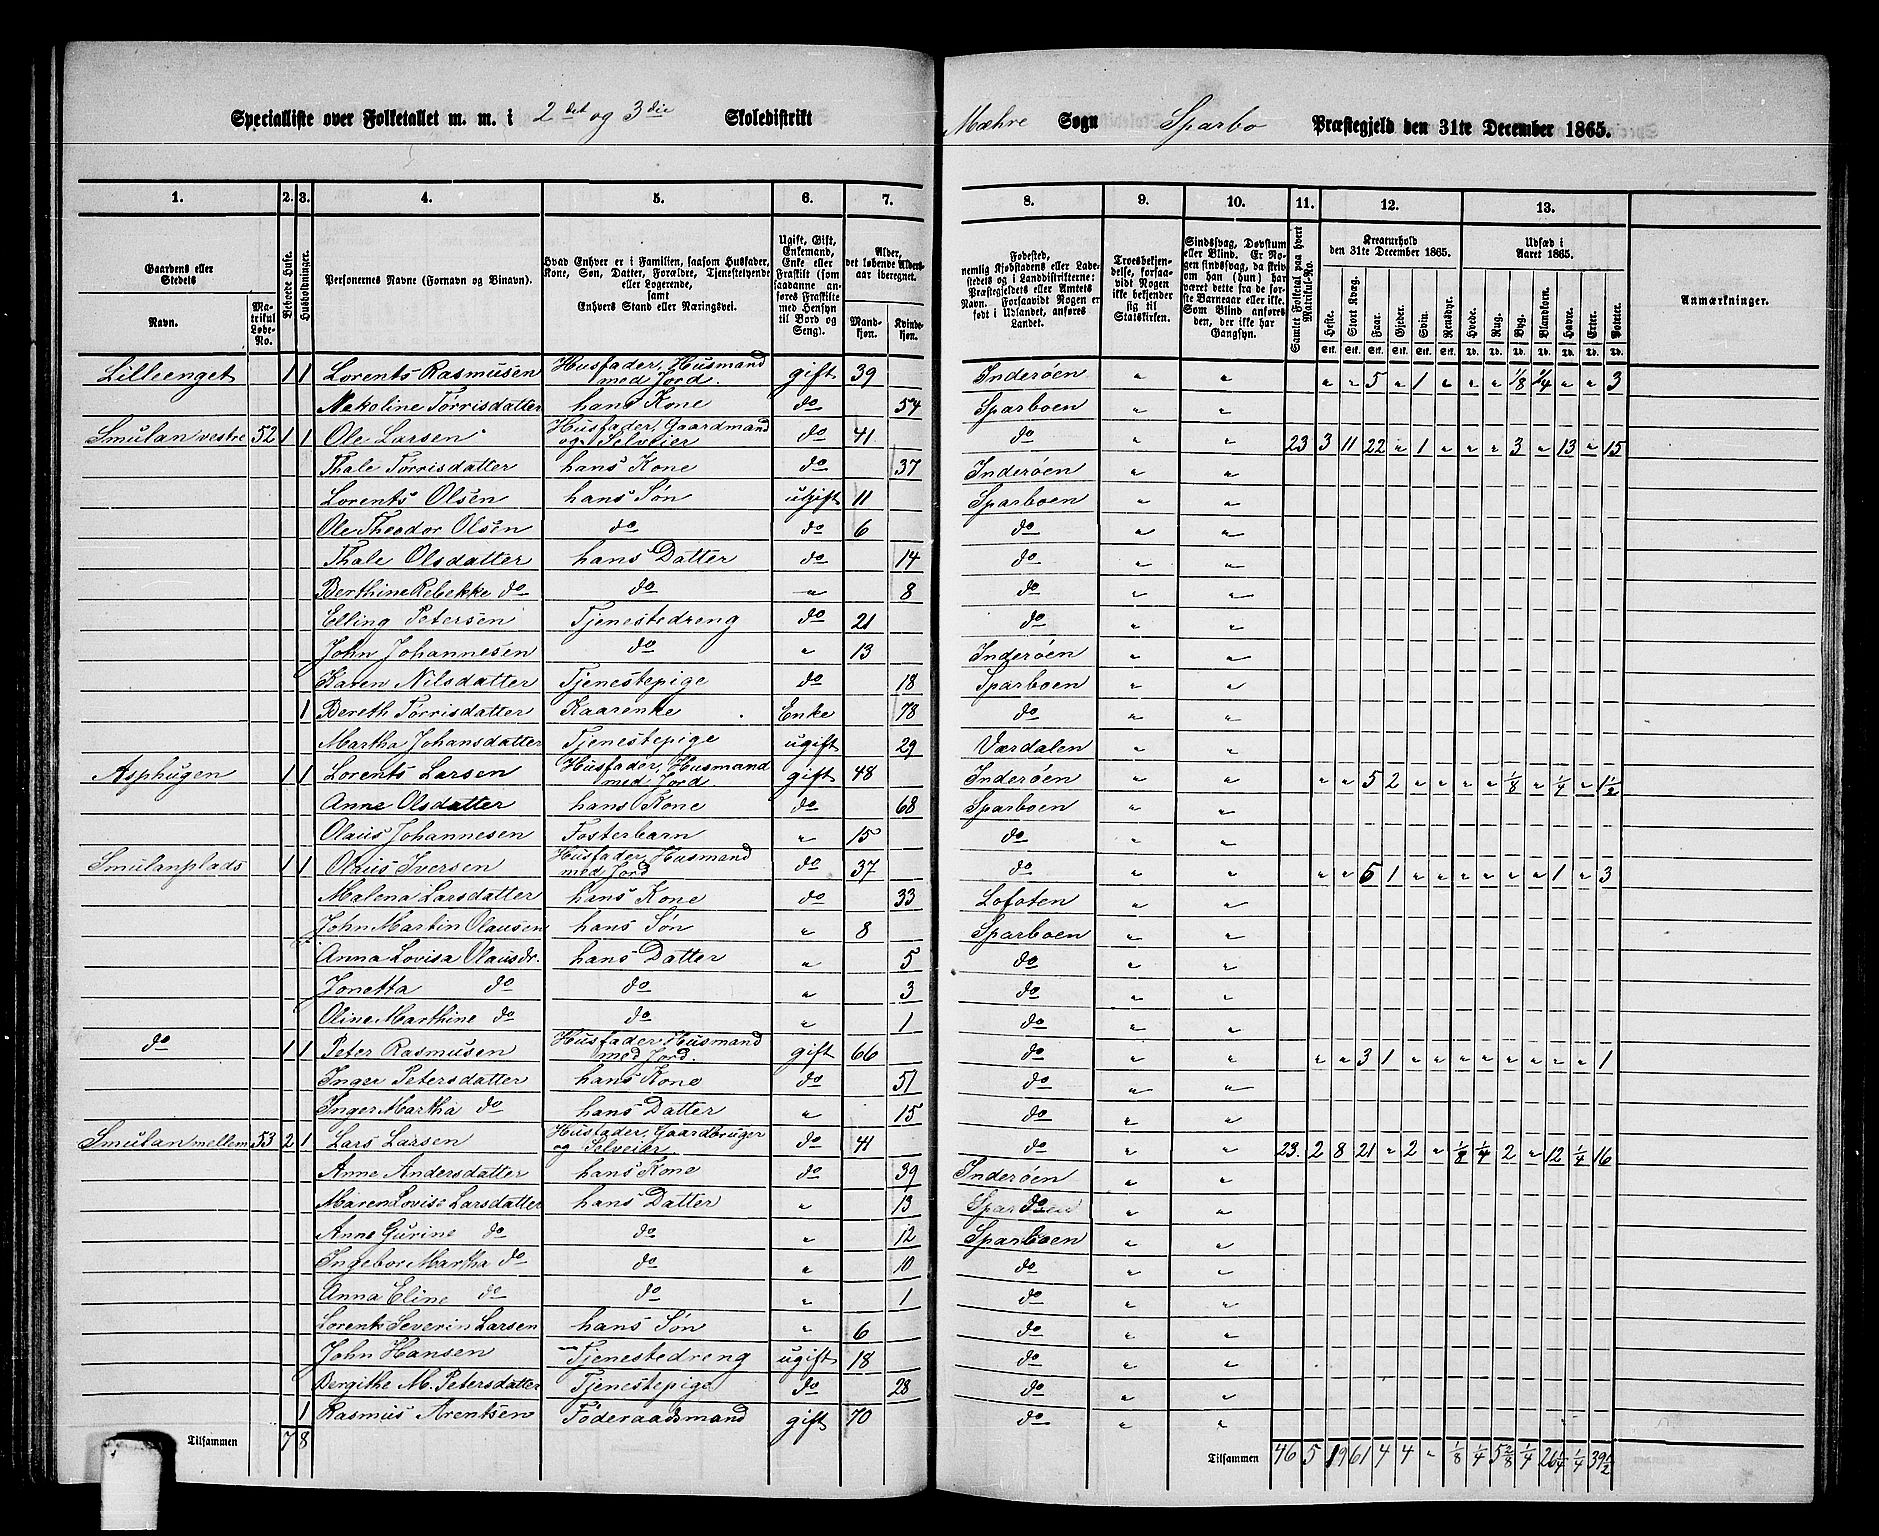 Specialliste over Folketallet m. m. i 2det og 3die Skoledistrikt Mæhre Sogn Sparbo Præstegjeld den 31te December 1865.
1. 2. 3. 4. 5. 6. 7. 8. 9. 10. 11. 12. 13.
Gaardens eller Stedets Navn. Matrikul Løbe-No. Beboede Huse. Husholdninger. Personernes Navne (Fornavn og Binavn). Hvad Enhver er i Familien, saasom Husfader, Kone, Søn, Datter, Forældre, Tjenestetyende eller Logerende, samt Enhvers Stand eller Næringsvei. Ugift, Gift, Enkemand, Enke eller Fraskilt (som saadanne anføres Fraskilte med Hensyn til Bord og Seng). Alder, det løbende Aldersaar iberegnet. Mandkjøn. Kvindekjøn. Fødested, nemlig Kjøbstadens eller Ladestedets og i Landdistrikterne: Præstegjeldets eller Amtets Navn. Forsaavidt Nogen er født i Udlandet, anføres Landet. Troesbekjendelse, forsaavidt Nogen ikke bekjender sig til Statskirken. Sindssvag, Døvstum eller Blind. Er Nogen sindssvag, da skrives om han (hun) har været dette fra de første Barneaar eller ikke. Som Blind anføres den, der ikke har Gangsyn. Samlet Folketal paa hvert Matrikul-No. Kreaturhold den 31te December 1865. Heste. Stort Kvæg. Faar. Gjeder. Svin. Rensdyr. Udsæd i Aaret 1865. Hvede. Rug. Byg. Blandkorn. Havre. Erter. Poteter. Anmærkninger.
Stk. Stk. Stk. Stk. Stk. Stk. Td. Td. Td. Td. Td. Td. Td.
Lilleenget 1 1 Lorents Rasmusen Husfader, Husmand med Jord. gift 39 Inderøen " " " " 5 " 1 " " " 1/8 1/4 " " 3
Nekoline Tørrisdatter hans Kone do 54 Sparboen " "
Smulan vestre 52 1 1 Ole Larsen Husfader, Gaardmand og Selveier do 41 do " " 23 3 11 22 " 1 " " " 3 " 13 " 15
Thale Tørrisdatter hans Kone do 37 Inderøen " "
Lorents Olsen hans Søn ugift 11 Sparboen " "
Ole Theodor Olsen do do 6 do " "
Thale Olsdatter hans Datter do 14 do " "
Berthine Rebekke do do " 8 do " "
Elling Petersen Tjenestedreng do 21 do " "
John Johannesen do " 13 Inderøen " "
Karen Nilsdatter Tjenestepige do 18 Sparboen " "
1 Bereth Tørrisdatter Kaarenke Enke 78 do " "
Martha Johansdatter Tjenestepige ugift 29 Værdalen " "
Asphugen 1 1 Lorents Larsen Husfader, Husmand med Jord. gift 48 Inderøen " " " " 5 2 " " " " 1/8 " 1/4 " 1 1/2
Anne Olsdatter hans Kone do 68 Sparboen " "
Olaus Johannesen Fosterbarn " 15 do " "
Smulanplads 1 1 Olaus Iversen Husfader, Husmand med Jord do 37 do " " " " 6 1 " " " " " " 1 " 3
Malena Larsdatter hans Kone do 33 Lofoten " "
John Martin Olausen hans Søn " 8 Sparboen " "
Anna Lovisa Olausdr. hans Datter " 5 do " "
Jonetta do do " 3 do " "
Oline Marthine do do " 1 do " "
do 1 1 Peter Rasmusen Husfader Husmand med Jord. gift 66 do " " " " 3 1 " " " " " " " " 1
Inger Petersdatter hans Kone do 51 do " "
Inger Martha do hans Datter " 15 do " "
Smulan mellem 53 2 1 Lars Larsen Husfader, Gaardbruger og Selveier. do 41 do " " 23. 2 8 21 " 2 " 1/8 1/4 2 " 12 1/4 16
Anne Andersdatter hans Kone do 39 Inderøen " "
Maren Lovise Larsdatter hans Datter " 13 do " "
Anne Gurine do do " 12 Sparboen " "
Ingebor Martha do do " 10 do " "
Anna Eline do do " 1 do " "
Lorents Severin Larsen hans Søn " 6 do " "
John Hansen Tjenestedreng ugift 18 do " "
Bergithe M. Petersdatter Tjenestepige do 28 do " "
1 Rasmus Arentsen Føderaadsmand gift 70 do " "
Tilsammen 7 8 Tilsammen 46 5 19 61 4 4 " 1/8 1/4 5 2/8 1/4 26 1/4 1/4 39 1/2